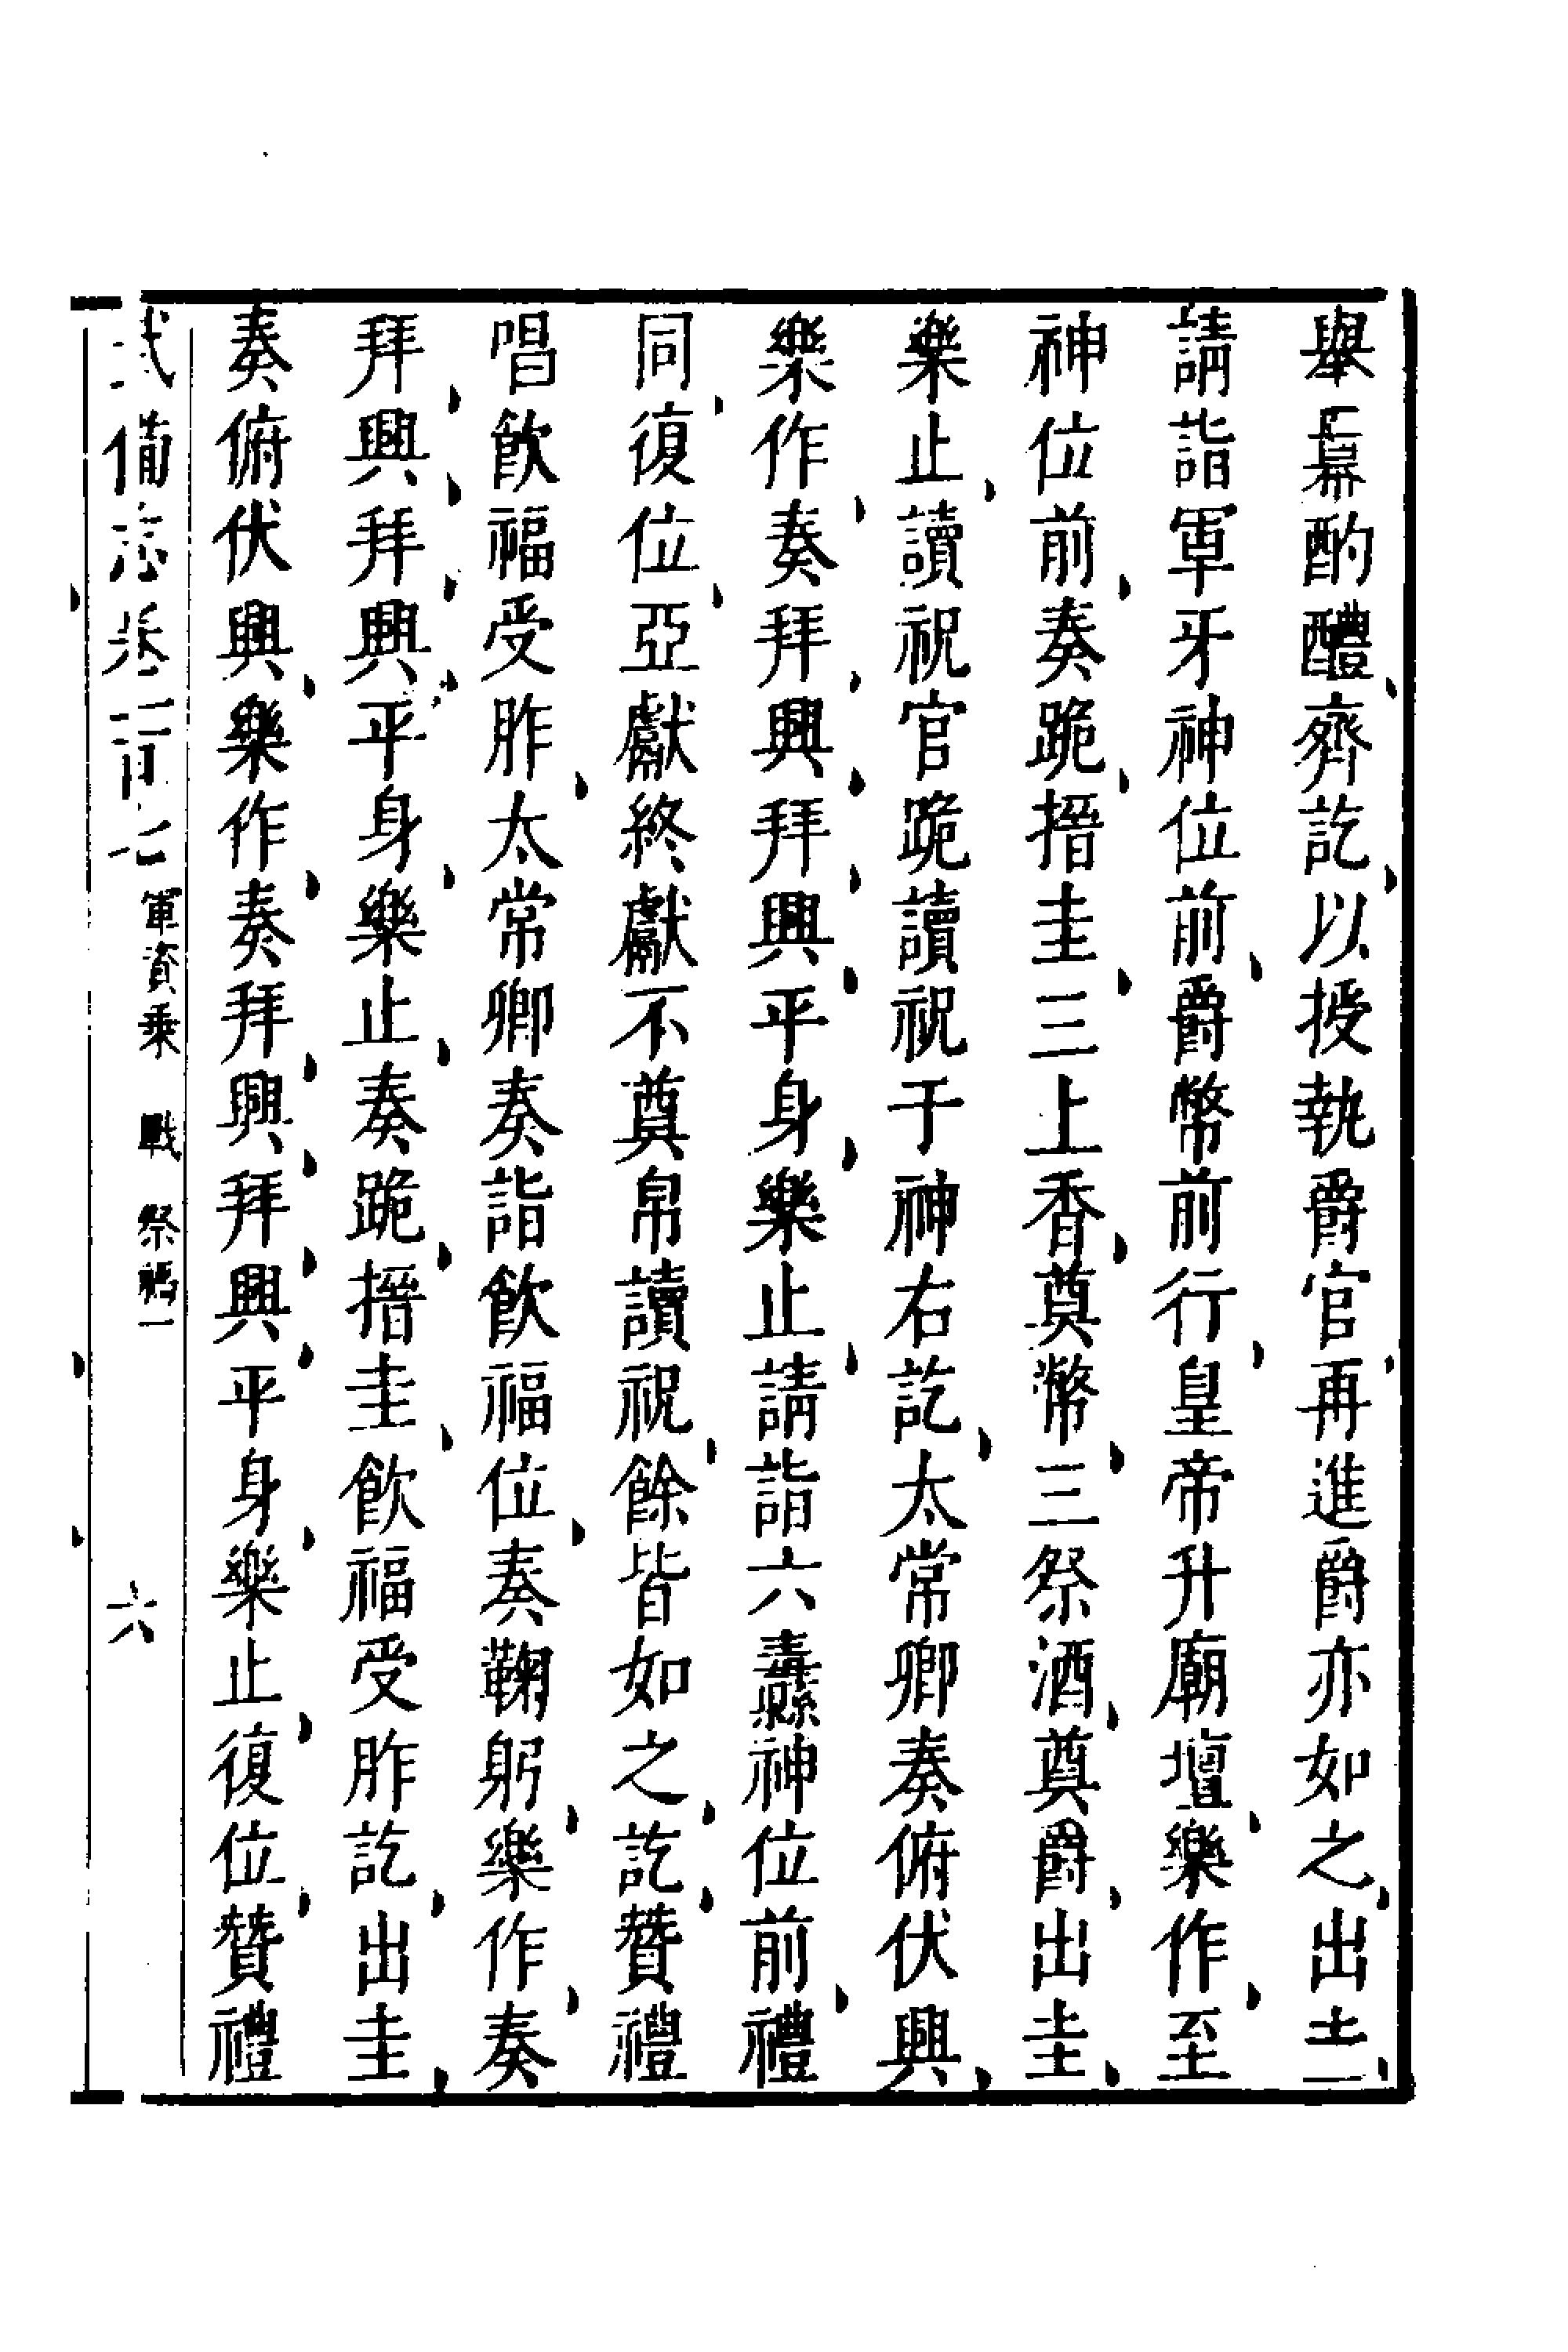 舉冪酌醴齊訖以授執爵官再進爵亦如之出圭
請詣軍牙神位前爵幣前行皇帝升廟壇樂作至
神位前奏跪搢圭三上香奠幣三祭酒奠爵出圭
樂止讀祝官跪讀祝于神右訖太常卿奏俯伏興
樂作奏拜興拜興平身樂止請詣六纛神位前禮
同復位亞獻終獻不奠帛讀祝餘皆如之訖贊禮
唱飲福受胙太常卿奏詣飲福位奏鞠躬樂作奏
拜興拜興平身樂止奏跪搢圭飲福受胙訖出圭
奏俯伏興樂作奏拜興拜興平身樂止復位贊禮
武備志卷一百七 軍資乘 戰 祭禡一 六